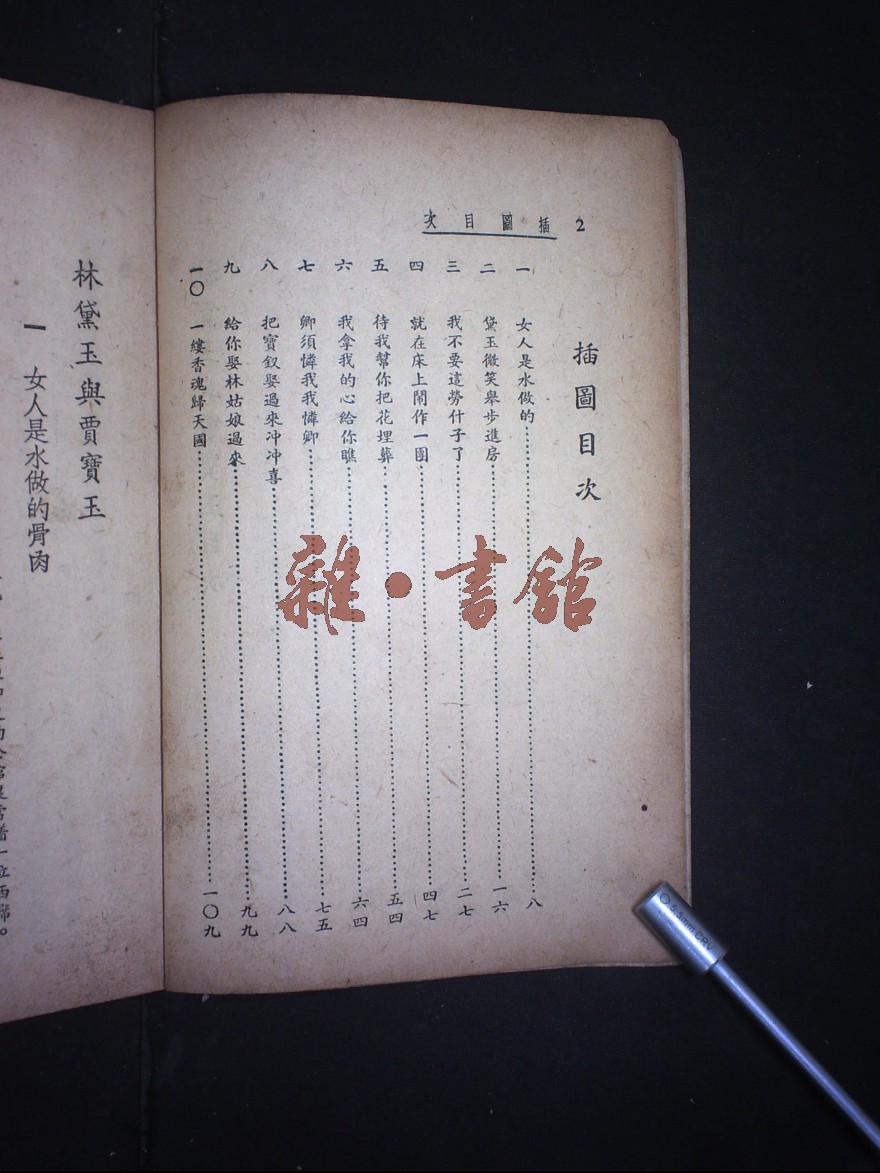 插圖目次 2
插圖目次
一 女人是水做的 八
二 黛玉微笑舉步進房 一六
三 我不要這勞什子了 二七
四 就在床上鬧作一團 四七
五 待我幫你把花埋葬 五四
六 我拿我的心給你瞧 六四
七 卿須憐我我憐卿 七五
八 把寶釵娶過來冲冲喜 八八
九 給你娶林姑娘過來 九九
一〇 一縷香魂歸天國 一〇九
林黛玉與賈寶玉
一 女人是水做的骨肉
一位西席。
雜·書館
5.5mm CRV